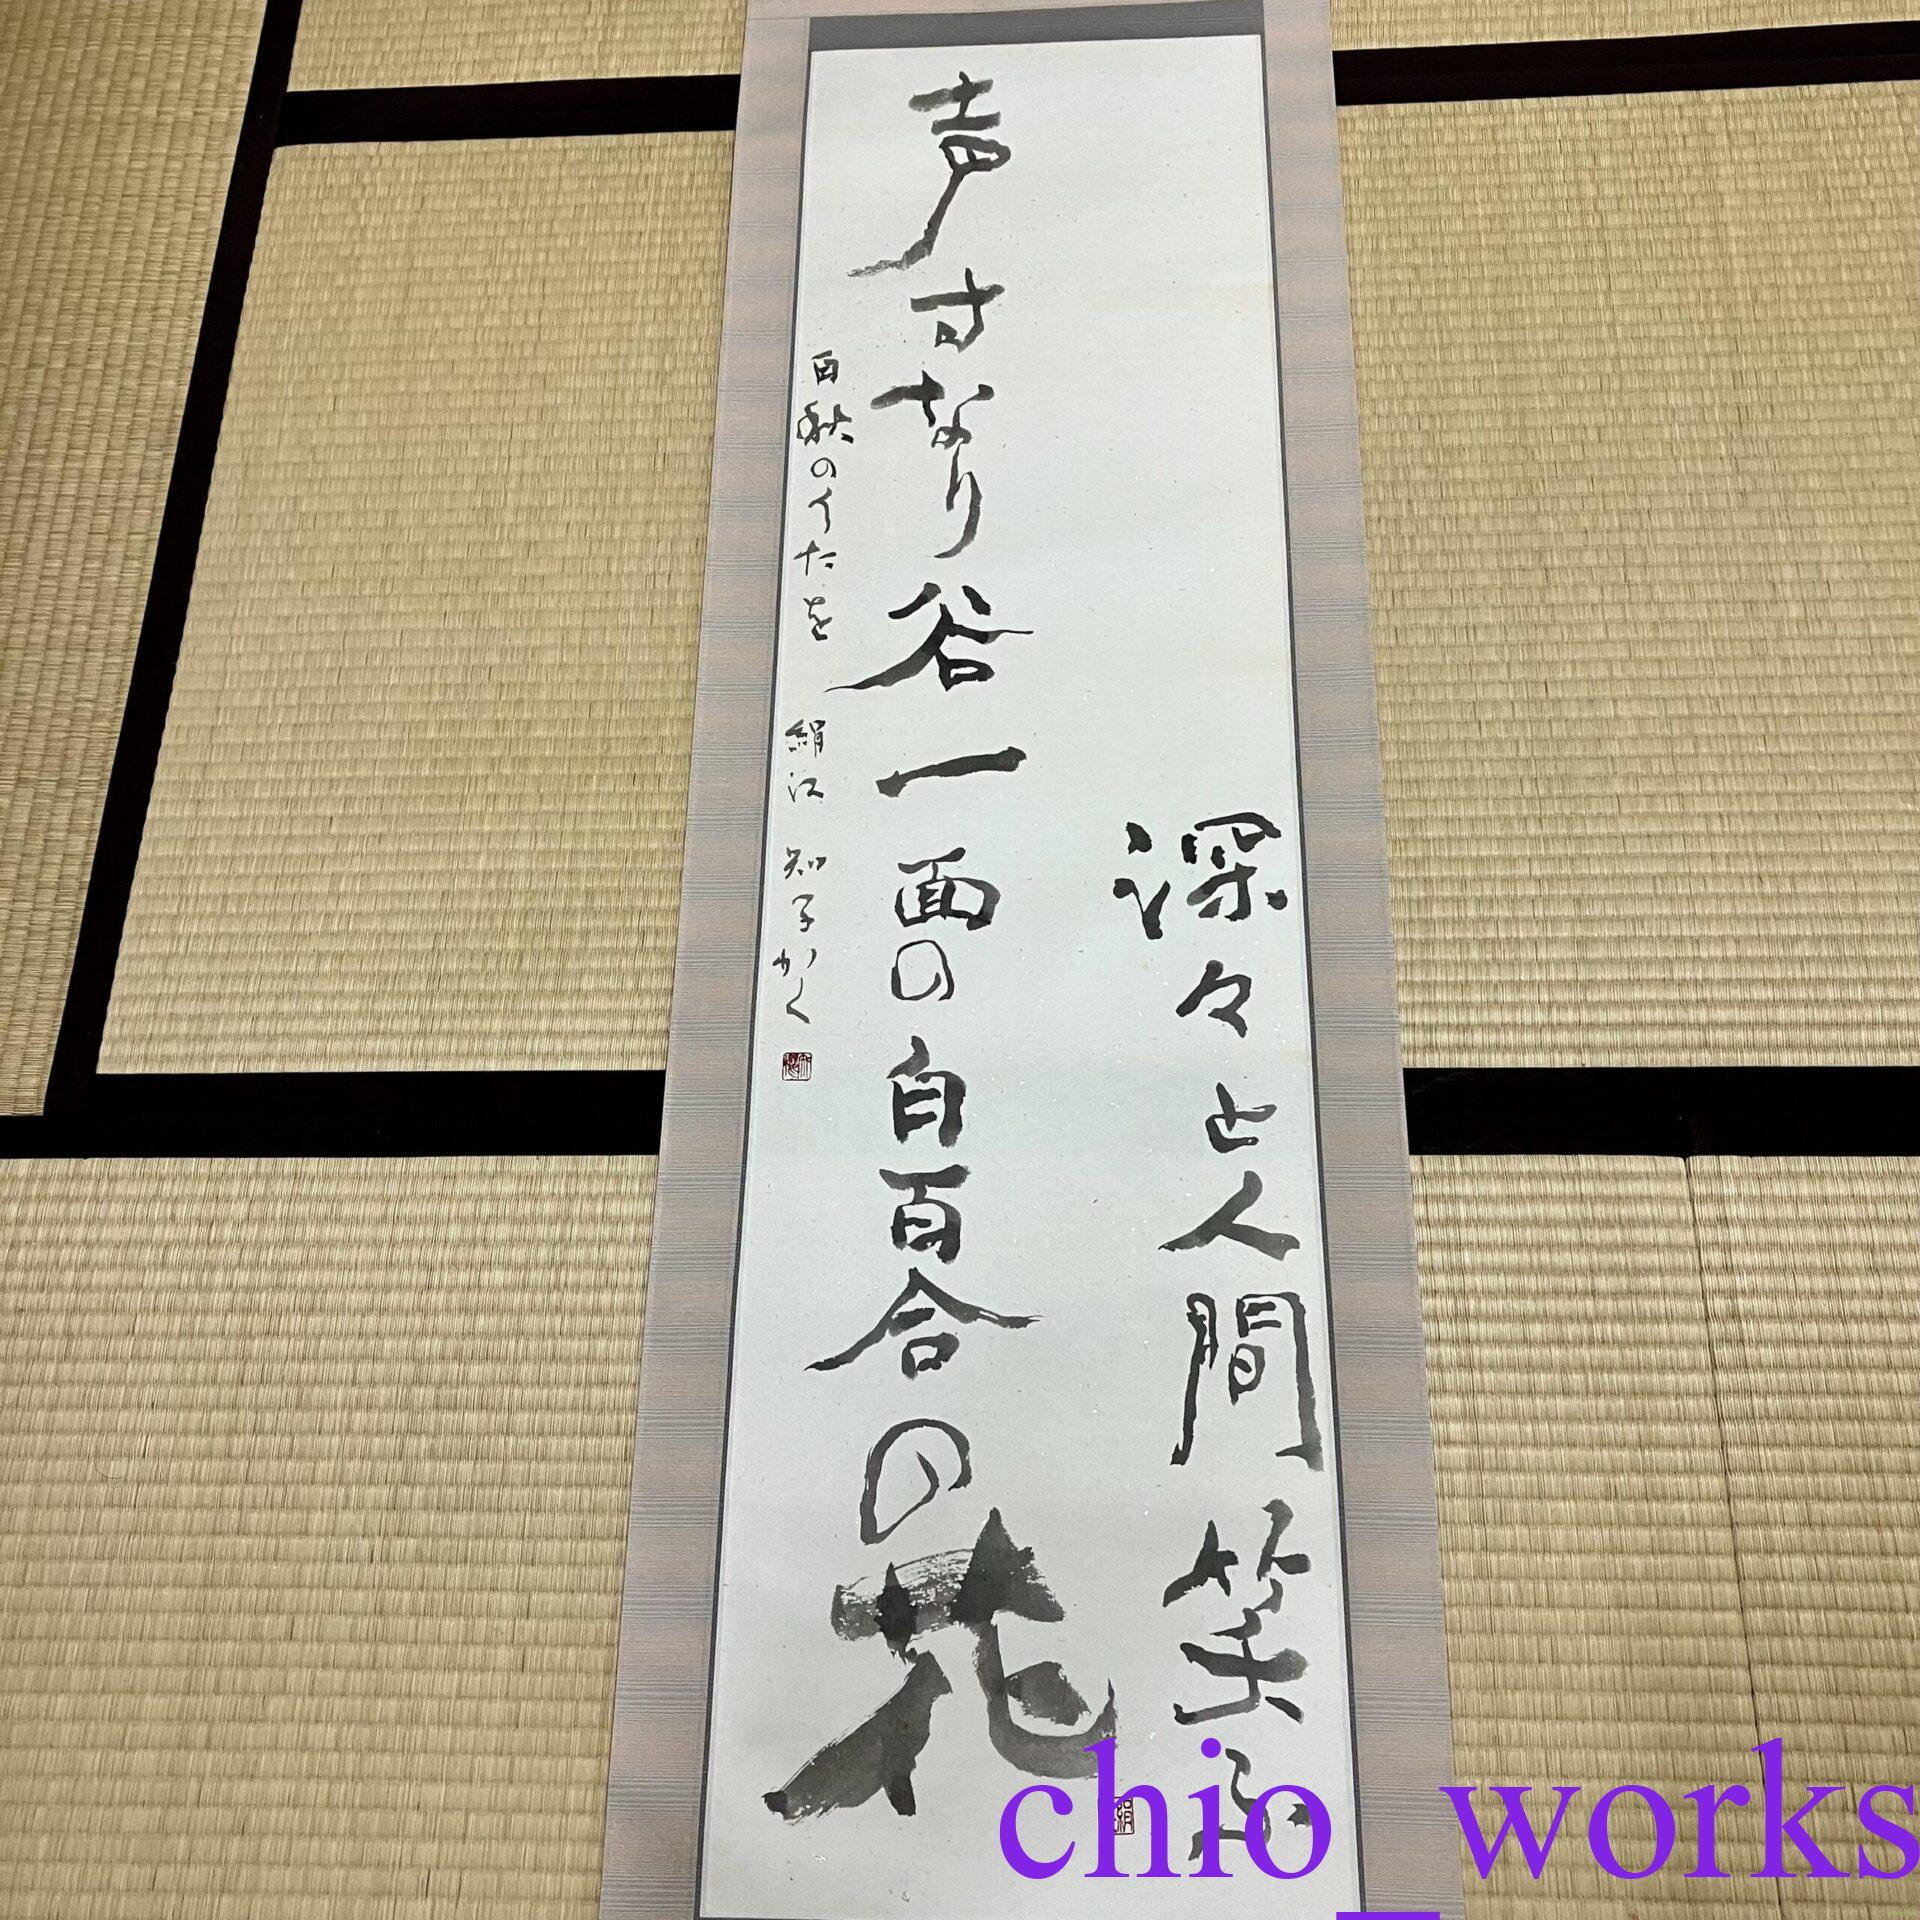 深々と人間笑ふ
声すなり谷一面の白百合の花
白秋のうたを 絹江 知子かく
絹
chio_works